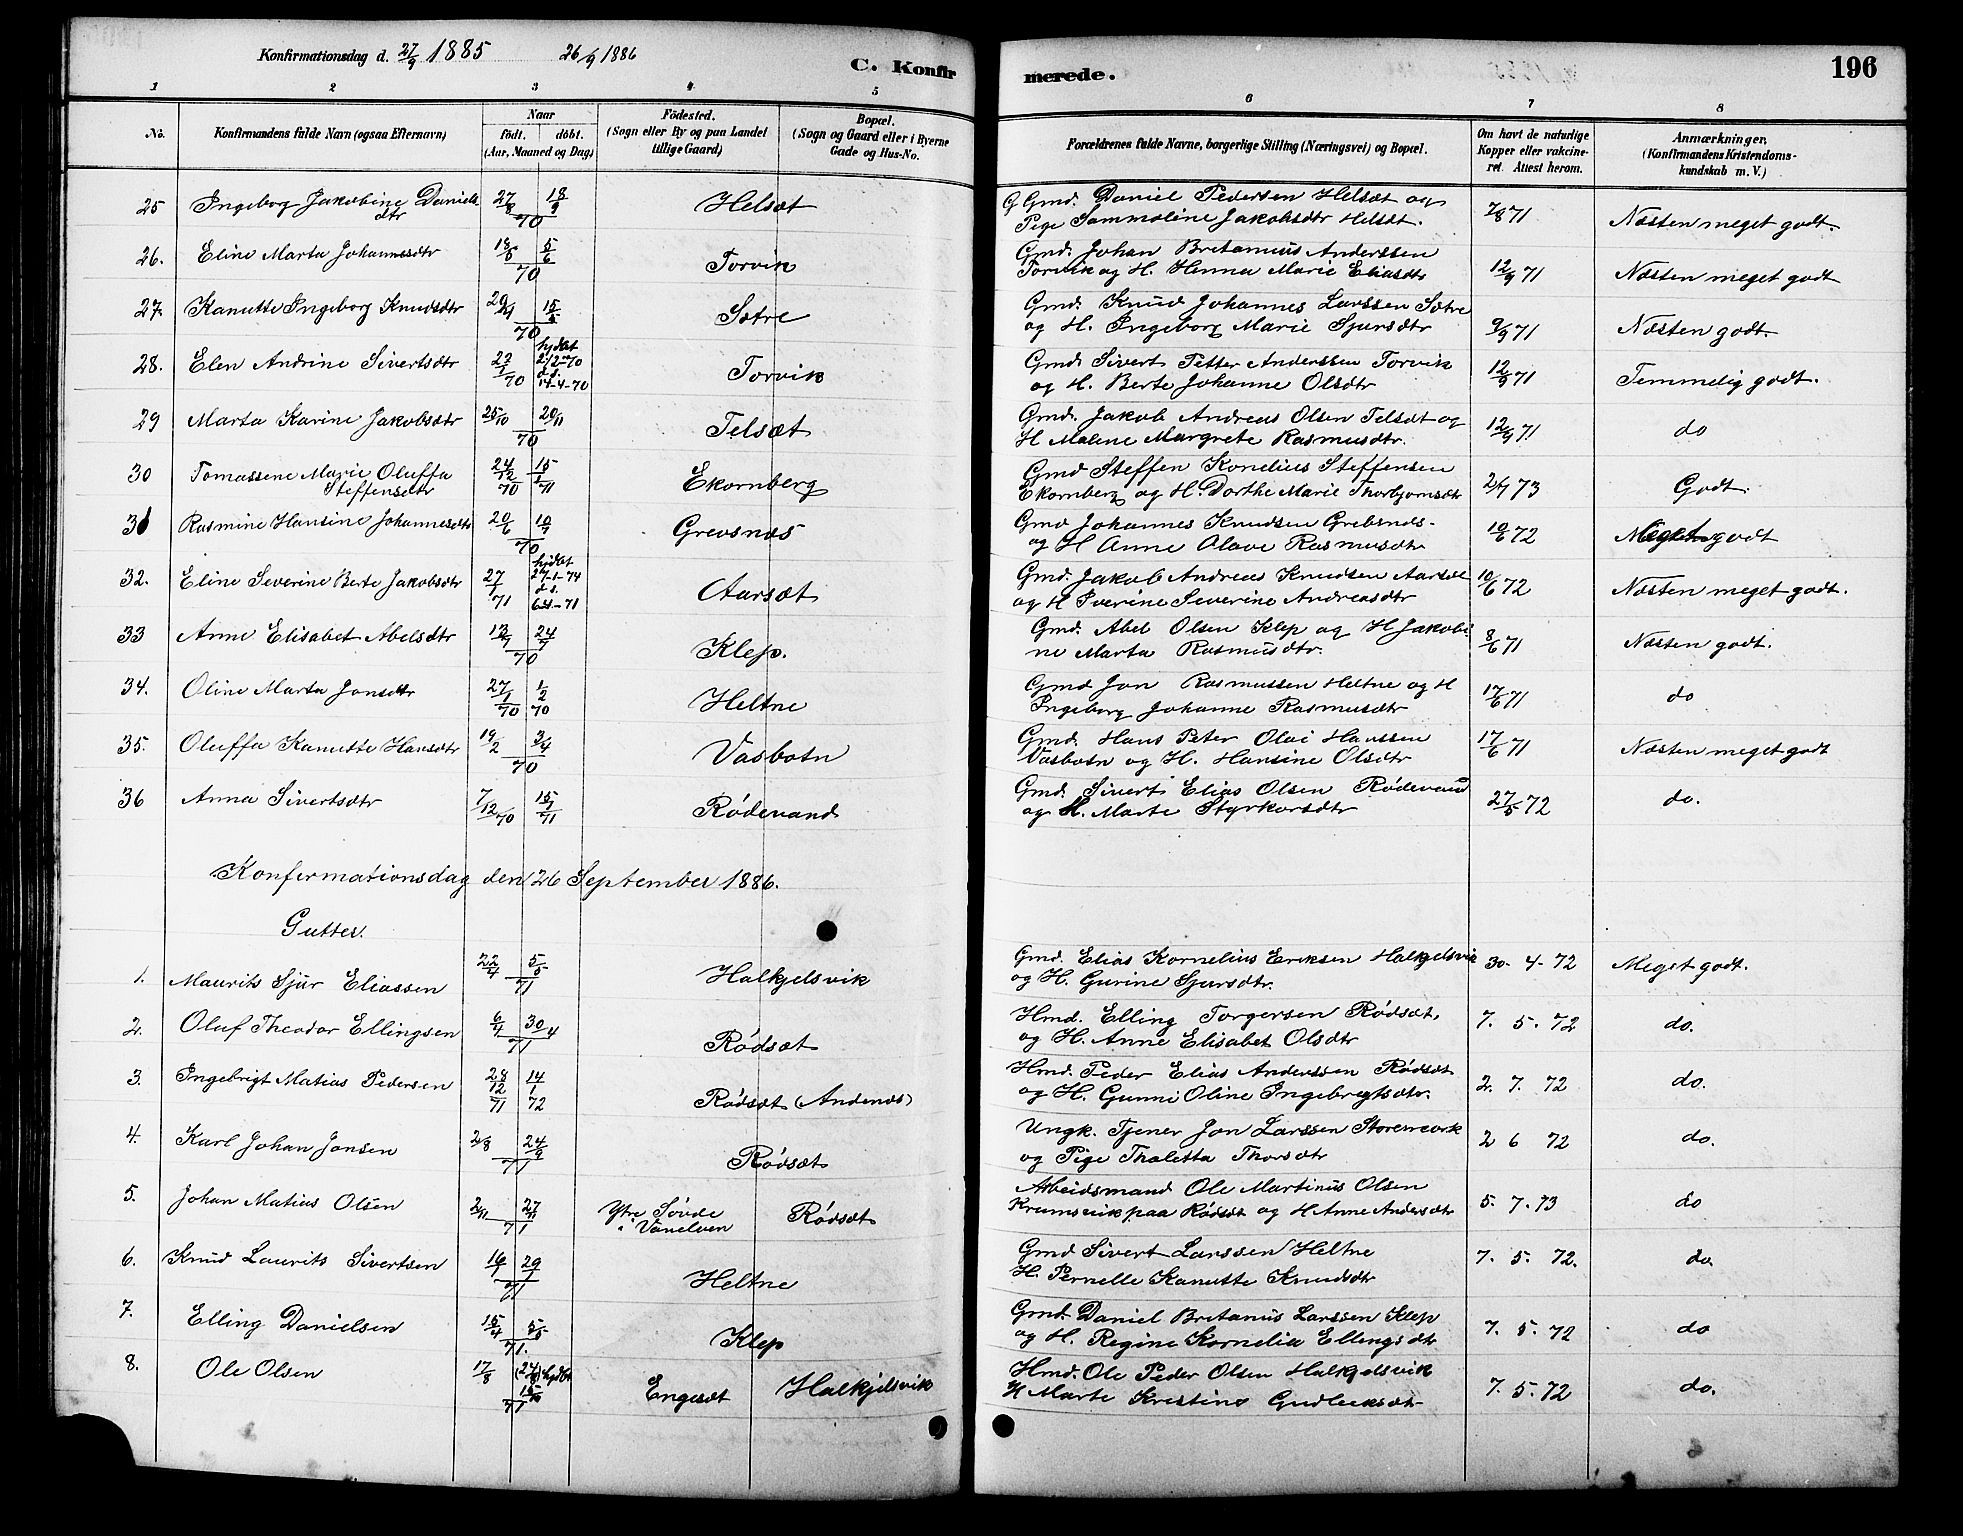 Konfirmationsdag d. 27/9 1885 26/9 1886
C. Konfirmerede.
196
1 2 3 4 5 6 7 8
No.
Konfirmandens fulde Navn (ogsaa Efternavn)
Naar
födt. döbt.
(Aar, Maaned og Dag)
Födested.
(Sogn eller By og paa Landet
tillige Gaard)
Bopæl.
(Sogn og Gaard eller i Byerne
Gade og Hus-No.
Forældrenes fulde Navne, borgerlige Stilling (Næringsvei) og Bopæl.
Om havt de naturlige
Kopper eller vakcine-
ret. Attest herom.
Anmærkninger,
(Konfirmandens Kristendoms-
kundskab m. V.)
25 Ingeborg Jakobine Daniels 27/8 18/9 Helsæt G Gmd. Daniel Pedersen Helsæt og 7/8 71 Næsten meget godt.
dtr 70 Pige Sammoline Jakobsdtr Helsæt.
26. Eline Marta Johannesdtr 18/5 5/6 Torvik Gmd. Johan Britanius Anderssen 12/9 71 Næsten meget godt
70 Torvik og H. Henna Marie Eliasdtr
27. Kanutte Ingeborg Knudsdtr 15/5 Sætre Gmd. Knud Johannes Larssen Sætre 9/9 71 Næsten godt.
70 og H. Ingeborg Marie Sjursdtr
28. Elen Andrine Sivertsdtr 22/1 70 hjdbt 2/2 70 d. s. 14-4-70 Torvik Gmd. Sivert Petter Anderssen Torvik 12/9 71 Temmelig godt.
og H. Berte Johanne Olsdtr
29 Marta Karine Jakobsdtr 25/10 20/11 Telsæt Gmd. Jakob Andreas Olsen Telsæt og 12/9 71 do
70 H Malene Margrete Rasmusdtr.
30 Tomassene Marie Oluffa 24/12 70 15/1 71 Ekornberg Gmd Steffen Kornelius Steffensen 2/7 73 Godt.
Steffensdtr Ekornberg og H. Dorthe Marie Thorbjornsdtr
31 Rasmine Hansine Johannesdtr 20/6 10/7 Grevsnæs Gmd Johannes Knudsen Grebsnæs- 10/6 72 Meget godt
70 og H Anne Olave Rasmusdtr
32. Eline Severine Berte Jakobsdtr 27/1 71 hjdbt 27-1-71 d. s. Aarsæt Gmd. Jakob Andreas Knudsen Aarsæt 10/6 72 Næsten meget godt.
og H Iverine Severine Andreasdtr
33 Anne Elisabet Abelsdtr 13/7 24/7 Klep. Gmd. Abel Olsen Klep og H Jakobi 8/6 71 Næsten godt.
70 ne Marta Rasmusdtr.
34. Oline Marta Jonsdtr 27/1 70 1/2 70 Heltne Gmd Jon Rasmussen Heltne og H 17/6 71 do
Ingeborg Johanne Rasmusdtr
35. Oluffa Kanutte Hansdtr 19/2 3/4 Vasbotn Gmd. Hans Peter Olai Hanssen 17/6 71 Næsten meget godt
70 Vasbotn og H. Hansine Olsdtr
36 Anna Sivertsdtr 7/12 70 15/1 71 Rødevand Gmd. Sivert Elias Olsen Rødevand 27/5 72 do.
og H. Marte Styrkorsdtr
Konfirmationsdag den 26 September 1886.
Gutter.
1. Maurits Sjur Eliassen 22/4 5/5 Halkjelsvik Gmd. Elias Kornelius Eriksen Halkjelsvik 30-4-72 Meget godt.
71 og H. Gurine Sjursdtr.
2. Oluf Theodor Ellingsen 6/4 30/4 Rødsæt Hmd. Elling Torgersen Rødsæt, 7. 5. 72 do.
71 og H. Anne Elisabet Olsdtr
3. Ingebrigt Matias Pedersen 28/12 71 14/1 72 Rødsæt (Andenæs) Hmd. Peder Elias Anderssen Rødsæt 2. 7. 72 do.
og H. Gunni Oline Ingebrigtsdtr.
4. Karl Johan Jonsen 2/8 24/9 Rødsæt Ungk. Tjener Jon Larssen Storemork 2 6 72 do.
71 og Pige Thaletta Thorsdtr
5. Johan Matias Olsen 2/11 27/11 Ytre Søvde Rødsæt Arbeidsmand Ole Martinus Olsen 5. 7. 73 do
71 i Vanelven Krumsvik paa Rødsæt og H Anne Andersdtr
6. Knud Laurits Sivertsen 16/1 29/1 Heltne Gmd Sivert Larssen Heltne 7. 5. 72. do.
71 H. Pernelle Kanutte Knudsdtr
7. Elling Danielsen 15/4 5/5 Klep Gmd Daniel Britanus Larssen Klep 7. 5. 72 do
71. og H. Regine Kornelia Ellingsdtr
8. Ole Olsen 17/8 (24/8) hjdbt Engesæt Halkjelsvik Hmd. Ole Peder Olsen Halkjelsvik 7. 5. 72 do.
71 H Marte Kristine Gudleiksdtr